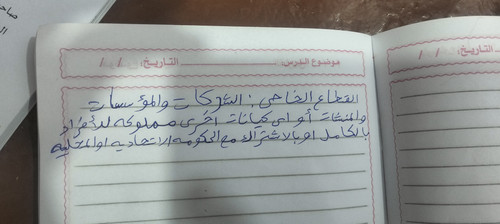 موضوع الدرس: التاريخ: / /
القطاع الخاص: الشركات والمؤسسات
والمنشآت أو اي كيانات اخرى مملوكه للأفراد
بالكامل او بالاشتراك مع الحكومه الاتحاديه او المحليه
التاريخ: / /